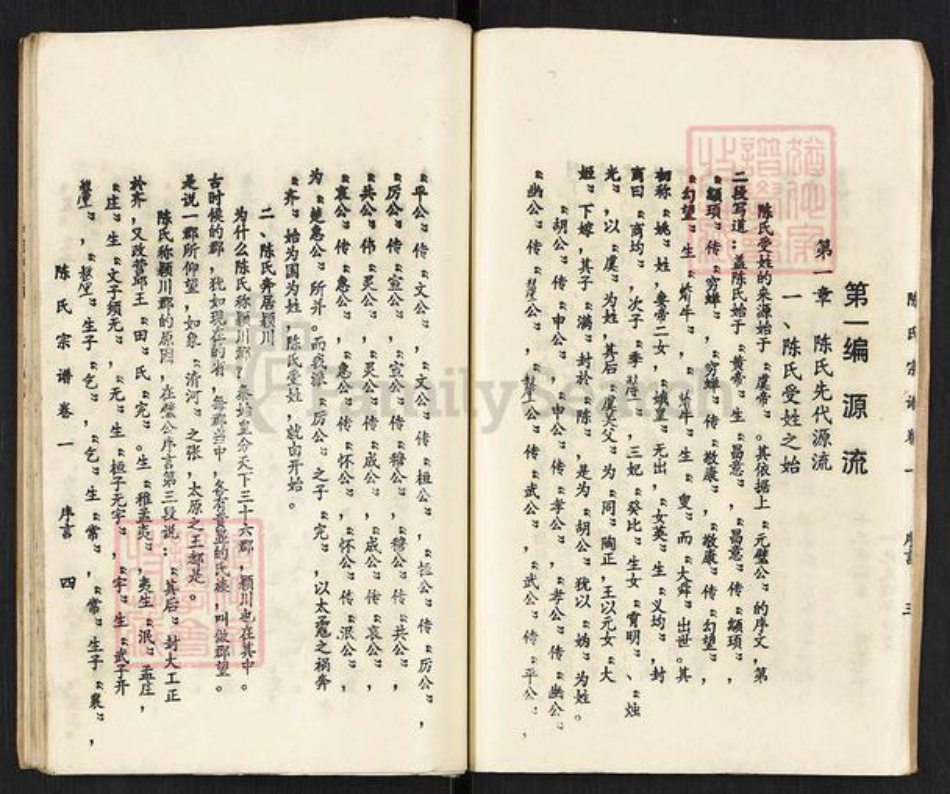 陈氏宗谱卷一 序言 三
第一编 源流
第一章 陈氏先代源流
一、陈氏受姓之始
陈氏受姓的来源始于“虞帝”。其依据上“元璧公”的序文，第
二段写道：盖陈氏始于“黄帝”生“昌意”，“昌意”传“颛顼”，
“颛顼”传“穷蝉”，“穷蝉”传“敬康”，“敬康”传“幻望”，
“幻望”生“牛”，“牛”生“叟”而“大舜”出世。其
初称“姚”姓，妻帝二女，“娥皇”无出，“女英”生“义均”，封
商曰“商均”，次子“季釐”，三妃“癸比”生女“宵明”、“烛
光”，以“虞”为姓，其后“虞芺父”为“周”陶正，王以元女“大
姬”下嫁，其子“满”封於“陈”，是为“胡公”犹以“妫”为姓。
“胡公”传“申公”，“申公”传“孝公”，“孝公”传“幽公”，
“幽公”传“釐公”，“釐公”传“武公”，“武公”传“平公”，
“平公”传“文公”，“文公”传“桓公”，“桓公”传“厉公”，
“厉公”传“宣公”，“宣公”传“穆公”，“穆公”传“共公”，
“共公”传“灵公”，“灵公”传“成公”，“成公”传“哀公”，
“哀公”传“惠公”，“惠公”传“怀公”，“怀公”传“泯公”，
为“楚惠公”所并。而我派“厉公”之子“完”，以太冤之祸奔
“齐”，始为国为姓，陈氏受姓，就由开始。
二、陈氏奔居颍川
为什么陈氏称颍川郡？秦始皇分天下三十六郡，颍川也在其中。
古时候的郡，犹如现在的省，每郡当中，各有首显的氏族，叫做郡望。
是说一郡所仰望，如象“清河”之张，太原之王都是。
陈氏称颍川郡的原因，在璧公序言第三段说：“其后”封大工正
於齐，又改营邱王“田”氏“完”。生“稚孟夷”，夷生“泯”孟庄，
“庄”生“文子须无”，“无”生“桓子无宇”，“宇”生“武子开
”，“”生子“乞”，“乞”生“常”，“常”生子“襄”，
陈氏宗谱卷一 序言 四